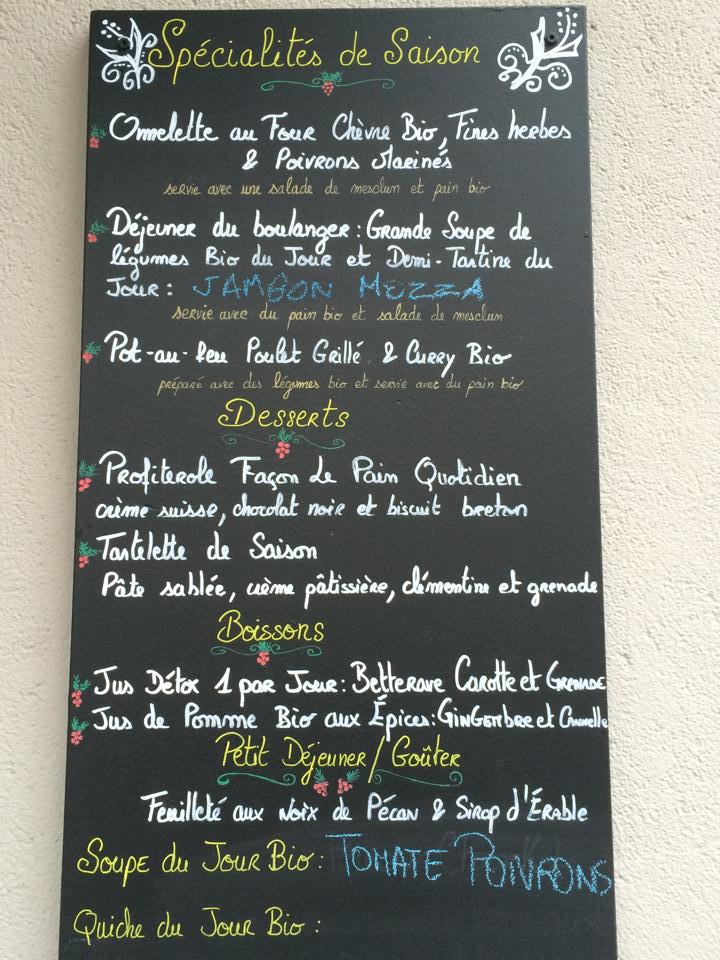 Spécialités de Saison
Omelette au Four Chèvre Bio, Fines herbes
& Poivrons Marinés
servie avec une salade de mesclun et pain bio
Déjeuner du boulanger : Grande Soupe de
légumes Bio du Jour et Demi-Tartine du
Jour : JAMBON MOZZA
servie avec du pain bio et salade de mesclun
Pot-au-feu Poulet Grillé & Curry Bio
préparé avec des légumes bio et servie avec du pain bio
Desserts
Profiterole Façon Le Pain Quotidien
crème suisse, chocolat noir et biscuit breton
Tartelette de Saison
Pâte sablée, crème pâtissière, clémentine et grenade
Boissons
Jus Détox 1 par Jour : Betterave Carotte et Grenade
Jus de Pomme Bio aux Épices : GinGembre et Cannelle
Petit Déjeuner / Goûter
Feuilleté aux Noix de Pécan & Sirop d'Érable
Soupe du Jour Bio : TOMATE POIVRONS
Quiche du Jour Bio :